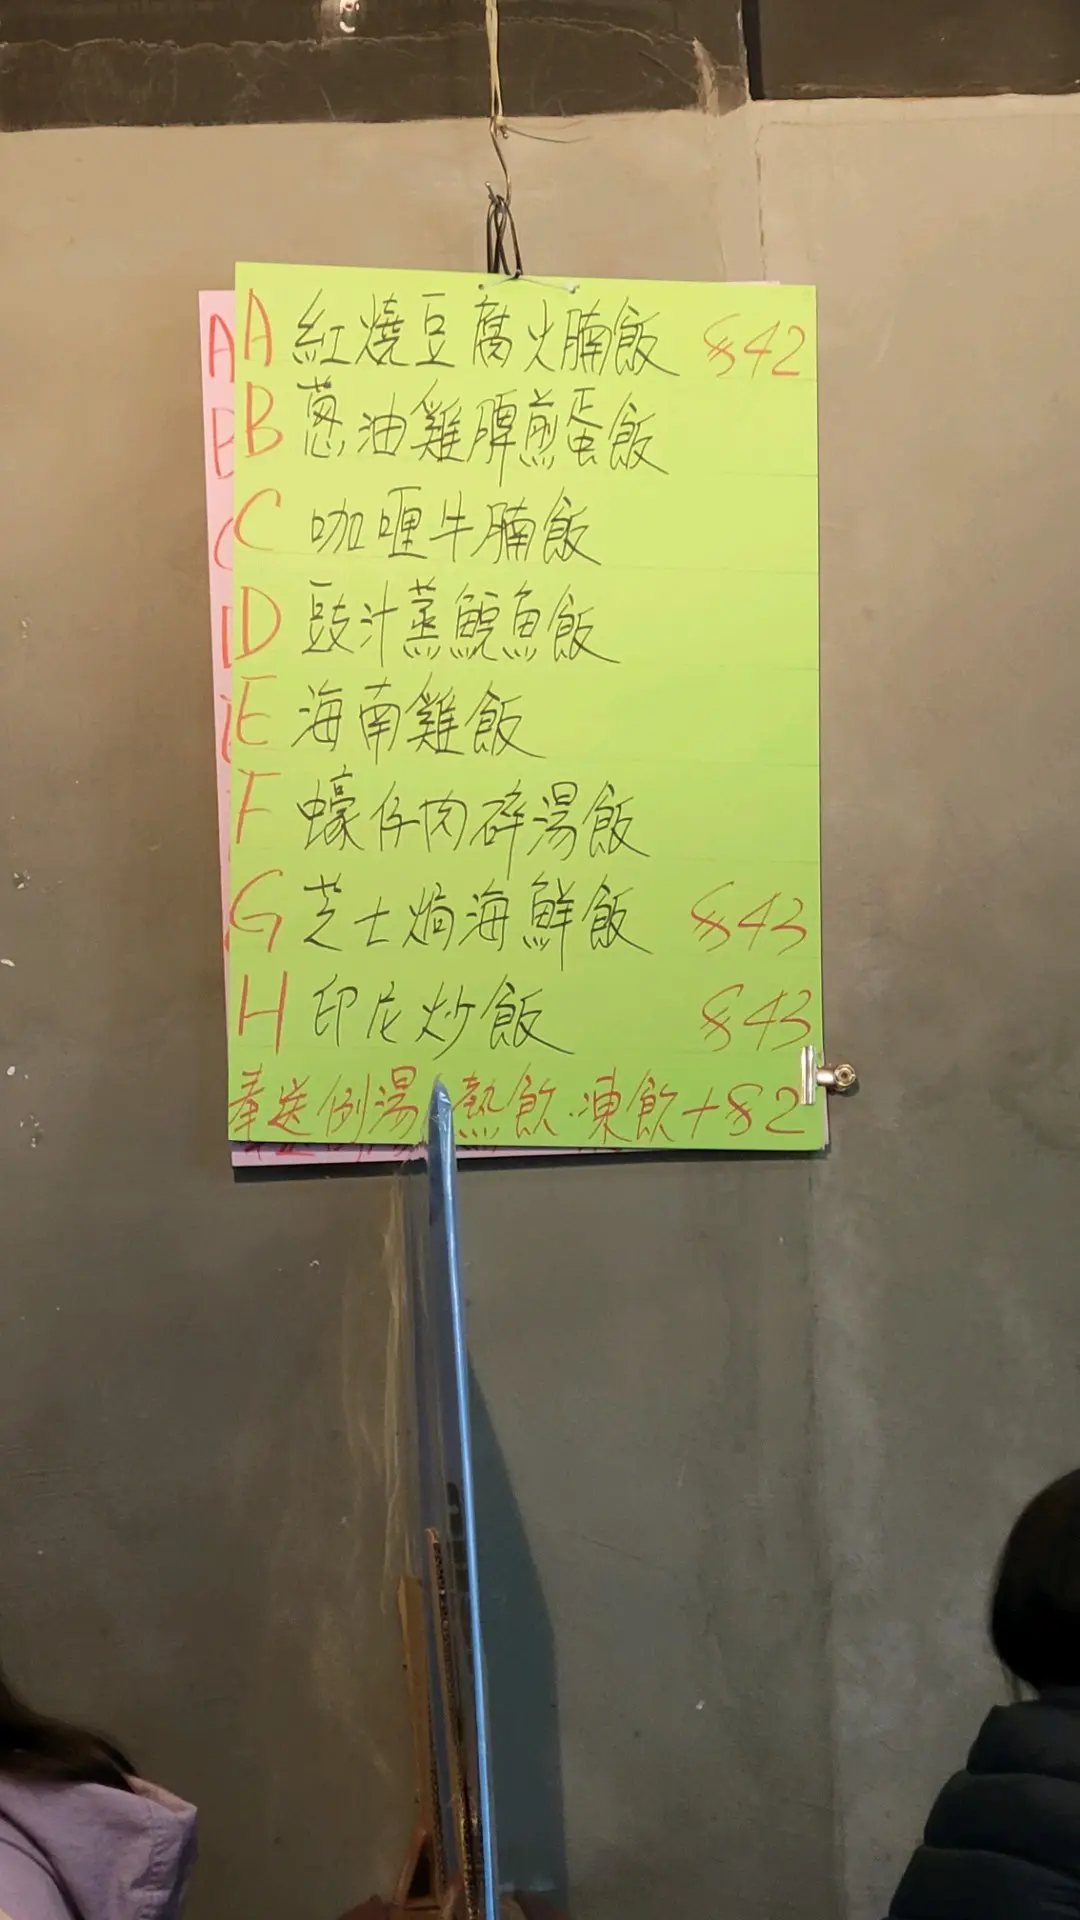 A 紅燒豆腐火腩飯 $42
B 蔥油雞脾煎蛋飯
C 咖喱牛腩飯
D 豉汁蒸鯇魚飯
E 海南雞飯
F 蠔仔肉碎湯飯
G 芝士焗海鮮飯 $43
H 印尼炒飯 $43
奉送例湯 熱飲.凍飲+$2
A
B
C
D